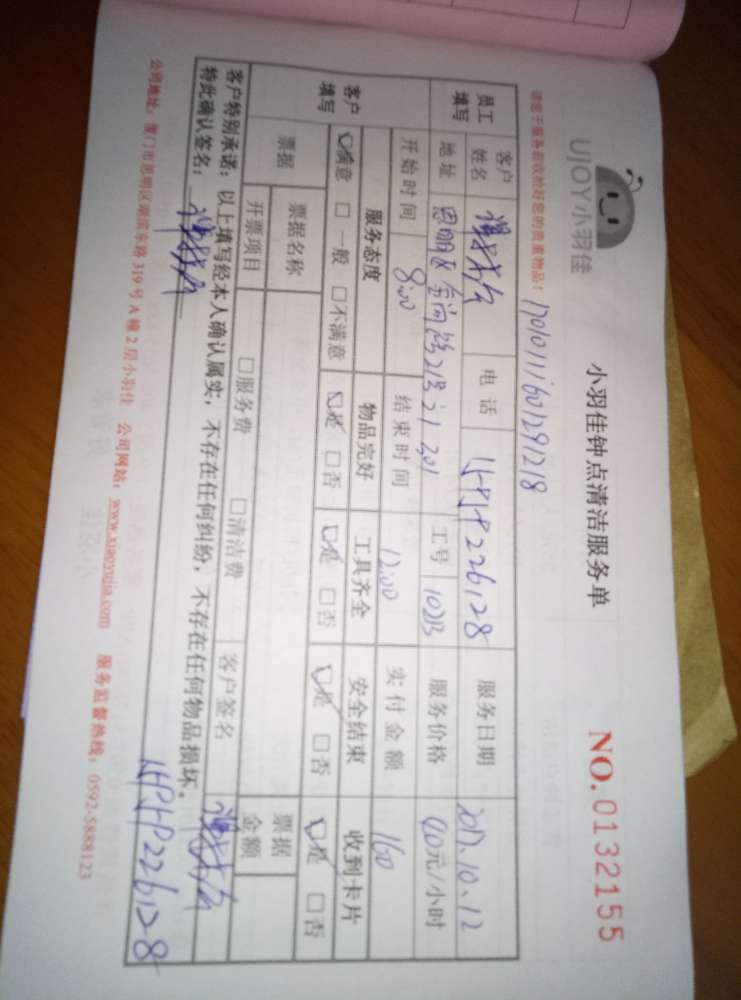 UJOY小羽佳
小羽佳钟点清洁服务单
NO.0132155
请您于服务前收拾好您的贵重物品！
员工填写 客户姓名 电话 服务日期 2017.10.12
地址 思明区 21号 201 工号 102B 服务价格 40元/小时
开始时间 8:00 结束时间 12:00 实付金额 160
客户填写 服务态度 物品完好 工具齐全 安全结束 收到卡片
☑满意 □一般 □不满意 ☑是 □否 ☑是 □否 ☑是 □否 ☑是 □否
票据 票据名称 票据金额
开票项目 □服务费 □清洁费 客户签名
客户特别承诺：以上填写经本人确认属实，不存在任何纠纷，不存在任何物品损坏。
特此确认签名：
公司地址：厦门市思明区湖滨东路319号A幢2层小羽佳 公司网站：www.xiaoyujia.com 服务监督热线：0592-5888123